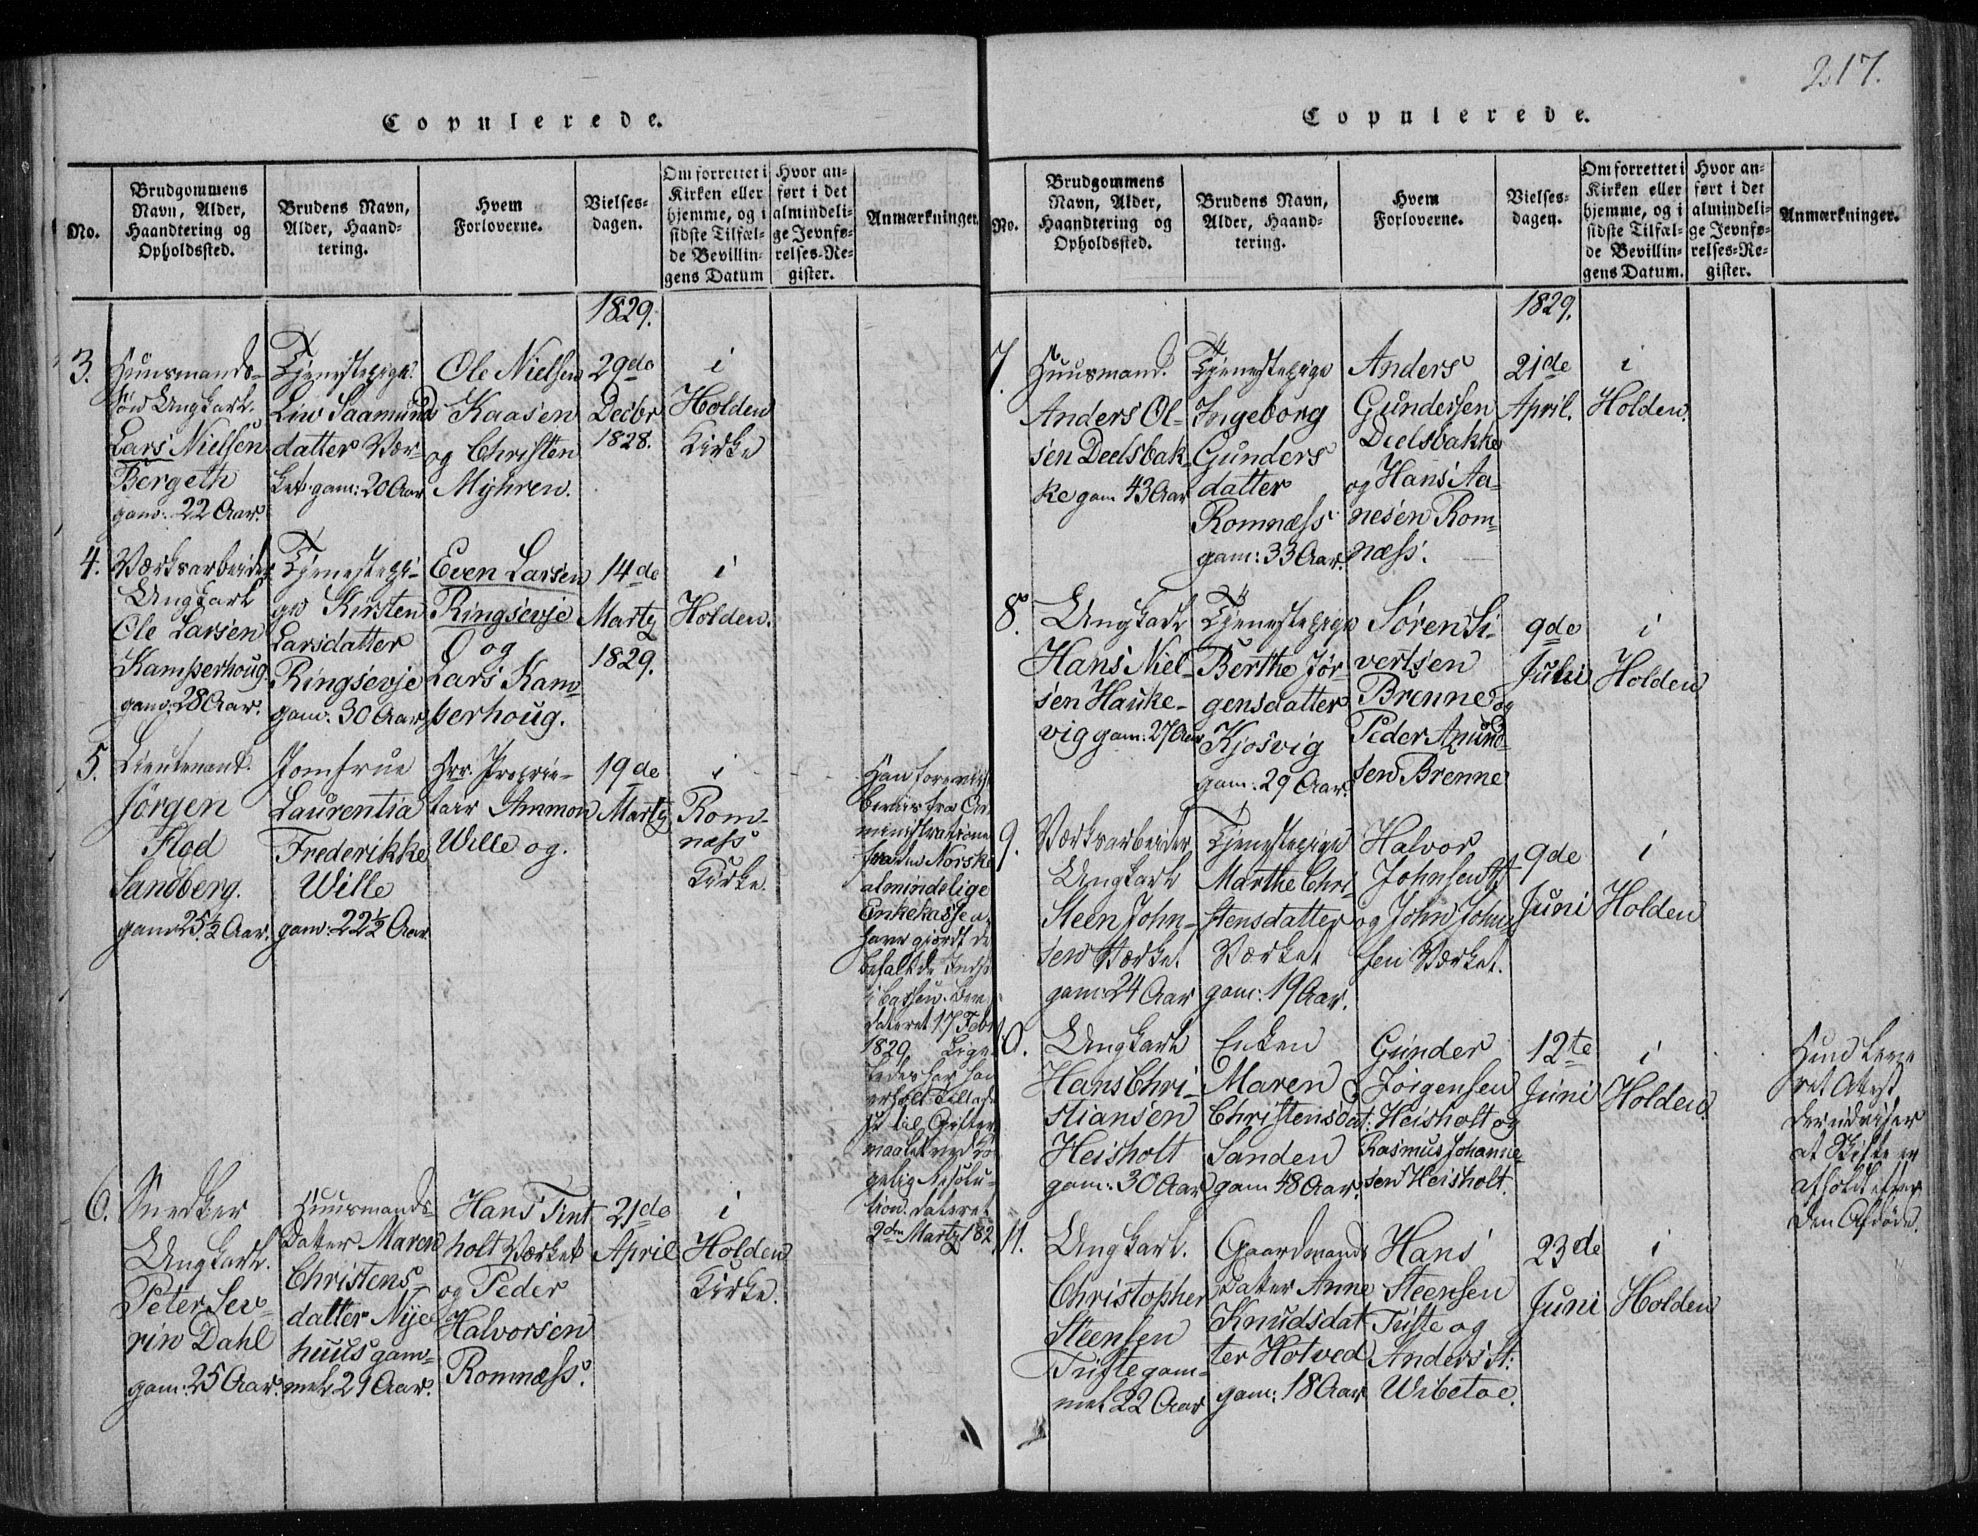 217.
Copulerede.
No.
Brudgommens
Navn, Alder,
Haandtering og
Opholdssted.
Brudens Navn,
Alder, Haand-
tering.
Hvem
Forloverne.
Vielses-
dagen.
Om forrettet i
Kirken eller
hjemme, og i
sidste Tilfæl-
de Bevillin-
gens Datum
Hvor an-
ført i det
almindeli-
ge Jevnfø-
relses-Re-
gister.
Anmærkninger.
1829.
3.
Huusmands-
søn Ungkarl.
Lars Nielsen
Bergeth
gam: 22 Aar.
Tjenestepige.
Liv Saamunds
datter Vær-
ket gam: 20 Aar
Ole Nielsen
Kaasen
og Christen
Myhren.
29de
Decbr
1828.
i
Holden
Kirke
4.
Værksarbeider
Ungkarl
Ole Larsen
Kamperhoug
gam: 28 Aar.
Tjenestepi-
ge Kirsten
Larsdatter
Ringsevje
gam: 30 Aar
Even Larsen
Ringsevje
og
Lars Kam-
perhoug.
14de
Marty
1829.
i
Holden.
5.
Lieutenant.
Jørgen
Flod
Sandberg.
gam 25½ Aar.
Jomfrue
Laurentia
Frederikke
Wille
gam: 22½ Aar
Hrr. Proprie-
tair Ammon
Wille og.
19de
Marty
i
Rom-
næss
Kirke.
Han foreviiste
beviis fra Ad
ministrationen
for den Norske
almindelige
Enkekasse at
have giordt de
befalede Indsk
i Cassen.
dateret 17 Feb
1829 Lige-
ledes har han
erholdt Tilladel
se til Gifter
maalet ved Ko
gelig Resolu-
tion dateret
2den Marty 182
6.
Snedker
Ungkarl.
Peter Sev-
rin Dahl
gam: 25 Aar.
Huusmands-
datter Maren
Christens-
datter Nye-
huus gam-
mel 29 Aar.
Hans Tint
holt Værket
og Peder
Halvorsen
Romnæss.
21de
April
i
Holden
Kirke.
Copulerede.
No.
Brudgommens
Navn, Alder,
Haandtering og
Opholdssted.
Brudens Navn,
Alder, Haand-
tering.
Hvem
Forloverne.
Vielses-
dagen.
Om forrettet i
Kirken eller
hjemme, og i
sidste Tilfæl-
de Bevillin-
gens Datum.
Hvor an-
ført i det
almindeli-
ge Jevnfø-
relses-Re-
gister.
Anmærkninger.
1829.
7.
Huusmand.
Anders Ol-
sen Deelsbak-
ke gam 43 Aar
Tjenestepige
Ingeborg
Gunders
datter
Romnæss
gam: 33 Aar.
Anders
Gundersen
Deelsbakke
og Hans Aa-
nesen Rom-
næss.
21de
April.
i
Holden.
8.
Ungkarl
Hans Niel-
sen Hauke-
vig gam: 27 Aar
Tjenestepige
Berthe Jør-
gensdatter
Kjosvig
gam: 29 Aar.
Søren Si-
vertsen
Brenne og
Peder Amund-
sen Brenne
9de
Juni
i
Holden
9.
Værksarbeider
Ungkarl
Steen John-
sen Værket.
gam: 24 Aar
Tjenestepige
Marthe Chri-
stensdatter
Værket
gam: 19 Aar.
Halvor
Johnsen
og John John-
sen Værket.
9de
Juni
i
Holden
10.
Ungkarl
Hans Chri-
stiansen
Heisholt
gam: 30 Aar
Enken
Maren
Christensdat:
Sanden
gam 48 Aar.
Gunder
Jørgensen
Heisholt og
Rasmus Johanne-
sen Heisholt.
12te
Juni
i
Holden.
Hun leve-
ret Atest
der udviser
at Skifte er
afholdt efter
den Afdøde.
11.
Ungkarl.
Christopher
Steensen
Tufte gam-
mel 22 Aar
Gaardmands
datter Anne
Knudsdat
ter Hotved
gam: 18 Aar
Hans
Steensen
Tufte og
Anders St:
Wibetoe.
23de
Juni
i
Holden